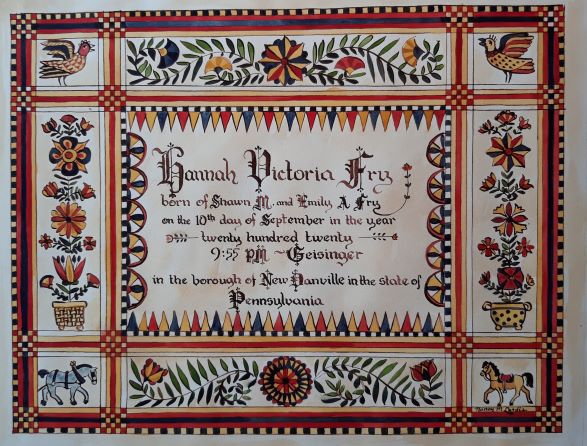 Hannah Victoria Fry
born of Shawn M. and Emily A. Fry
on the 10th day of September in the year
twenty hundred twenty
9:55 PM ~Geisinger
in the borough of New Danville in the state of
Pennsylvania
Nancy M.